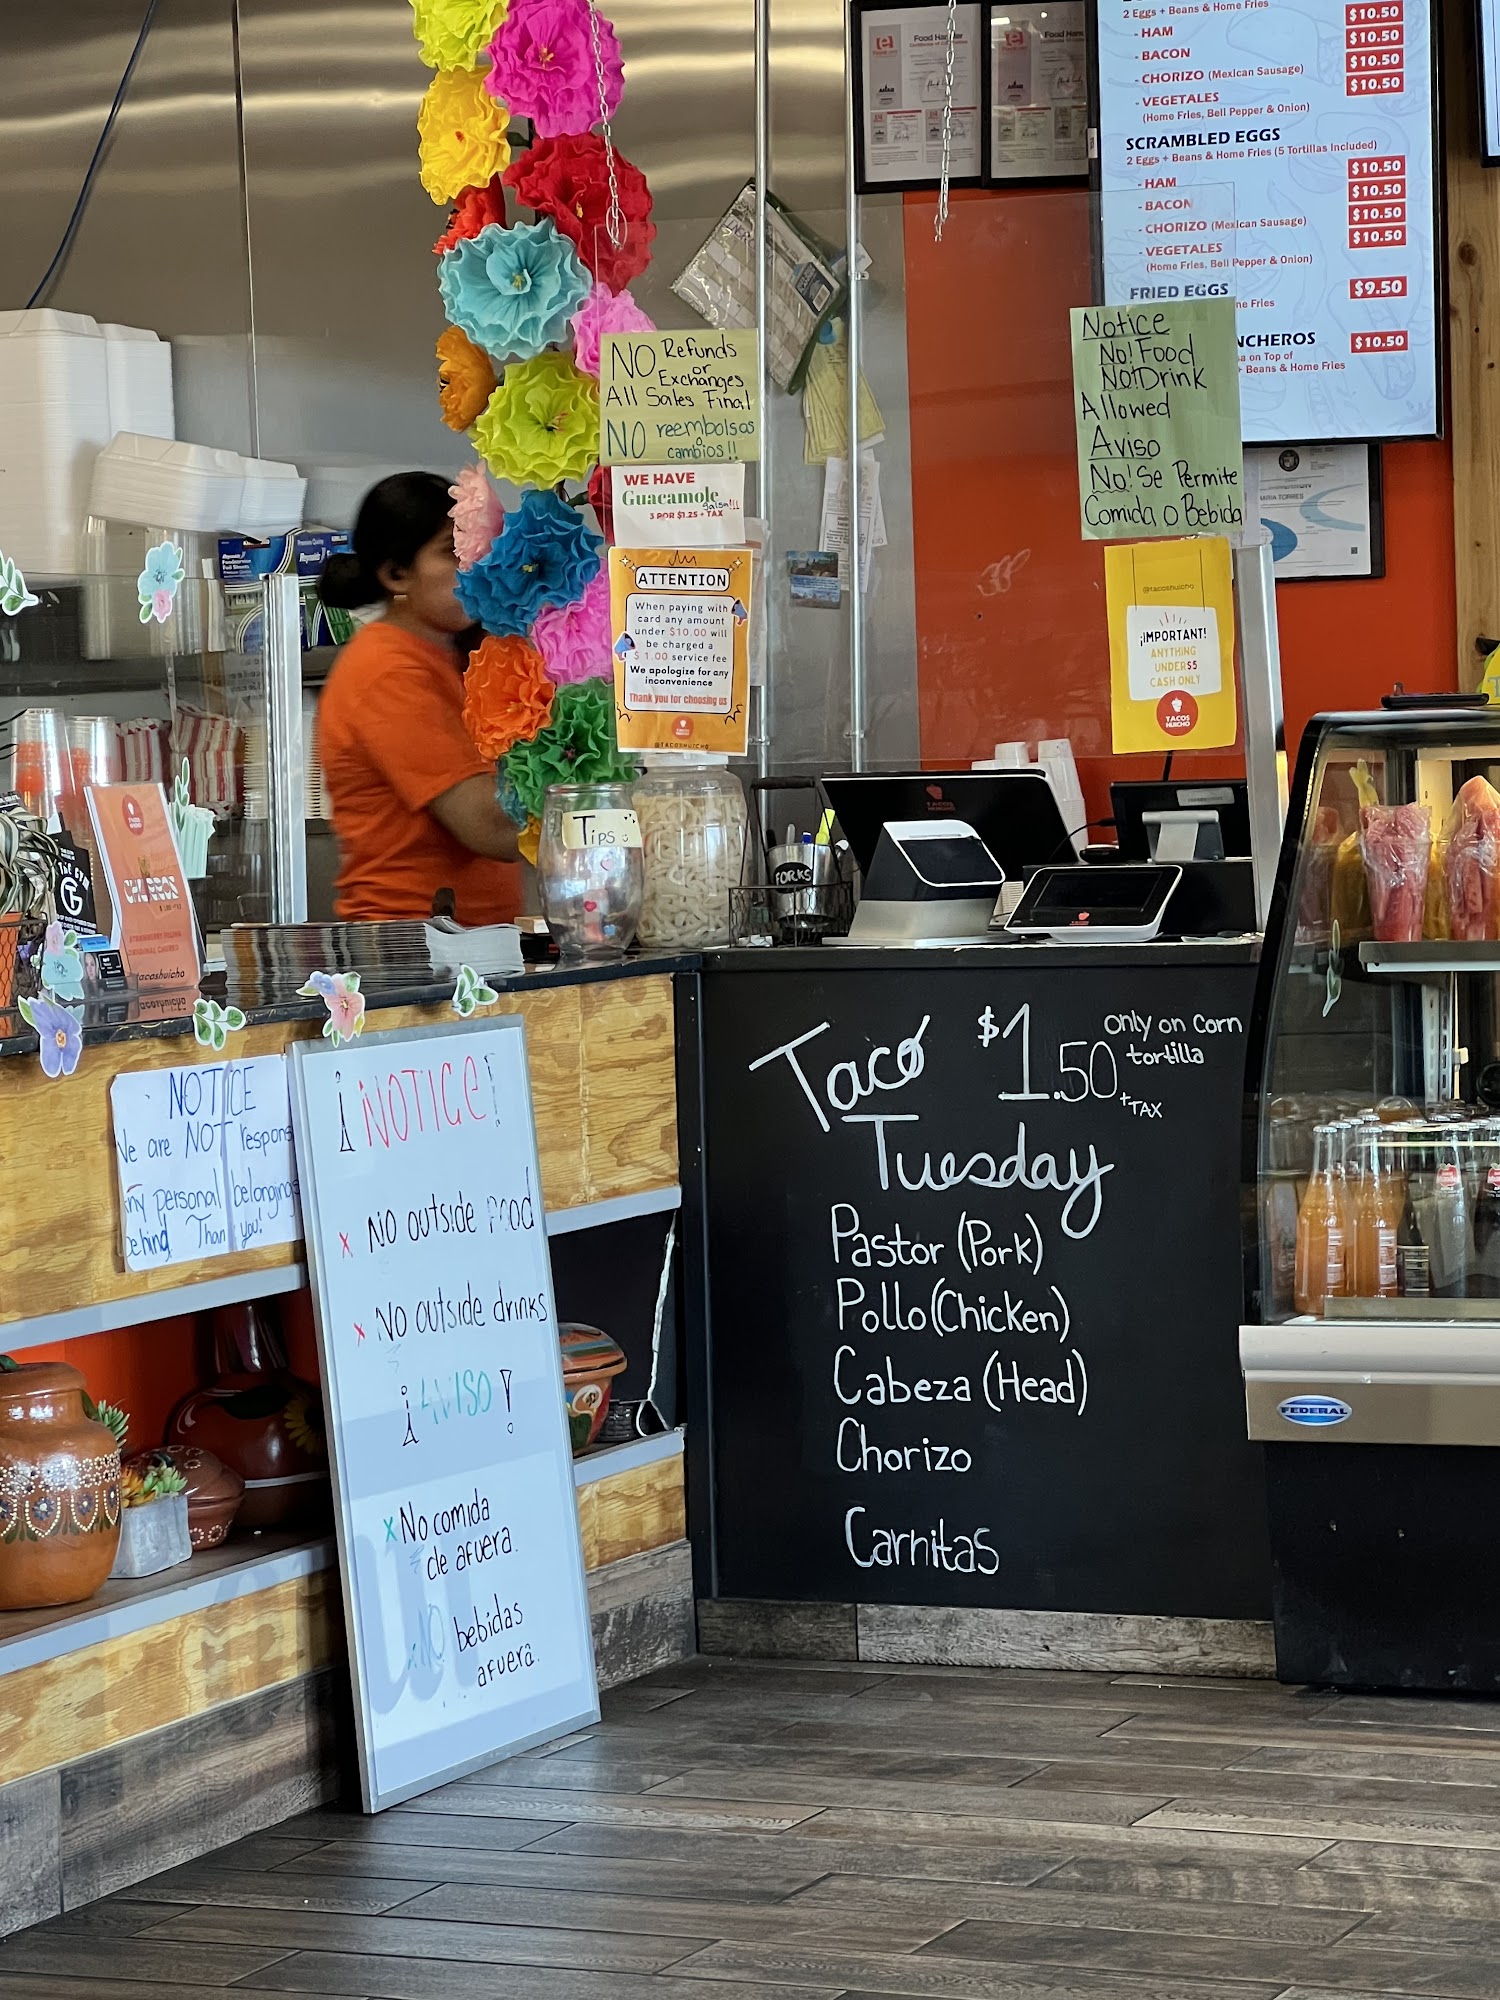 2 Eggs + Beans & Home Fries
- HAM $10.50
- BACON $10.50
- CHORIZO (Mexican Sausage) $10.50
- VEGETALES $10.50
(Home Fries, Bell Pepper & Onion)
SCRAMBLED EGGS
2 Eggs + Beans & Home Fries (5 Tortillas Included)
- HAM $10.50
- BACON $10.50
- CHORIZO (Mexican Sausage) $10.50
- VEGETALES $10.50
(Home Fries, Bell Pepper & Onion)
FRIED EGGS $9.50
me Fries
NCHEROS $10.50
on Top of
+ Beans & Home Fries
Food
ARIA TORRES
NO Refunds
or
Exchanges
All Sales Final
NO reembolsos
o
cambios!!
WE HAVE
Guacamole
Salsa!!!
3 POR $1.25 + TAX
ATTENTION
When paying with
card any amount
under $10.00 will
be charged a
$ 1.00 service fee
We apologize for any
inconvenience
Thank you for choosing us
TACOS
HUICHO
@TACOSHUICHO
Notice
No! Food
No! Drink
Allowed
Aviso
No! Se Permite
Comida o Bebida
@tacoshuicho
¡IMPORTANT!
ANYTHING
UNDER $5
CASH ONLY
TACOS
HUICHO
TACOS
HUICHO
Tips
FORKS
THE GYM
G
tacoshuicho
NOTICE
We are NOT respons
ny personal belongings
behind. Than you!
¡NOTICE!
x NO outside food
x NO outside drinks
¡AVISO!
x No comida
de afuera.
NO bebidas
afuera.
Taco
Tuesday
$1.50 + TAX
only on corn
tortilla
Pastor (Pork)
Pollo (Chicken)
Cabeza (Head)
Chorizo
Carnitas
FEDERAL